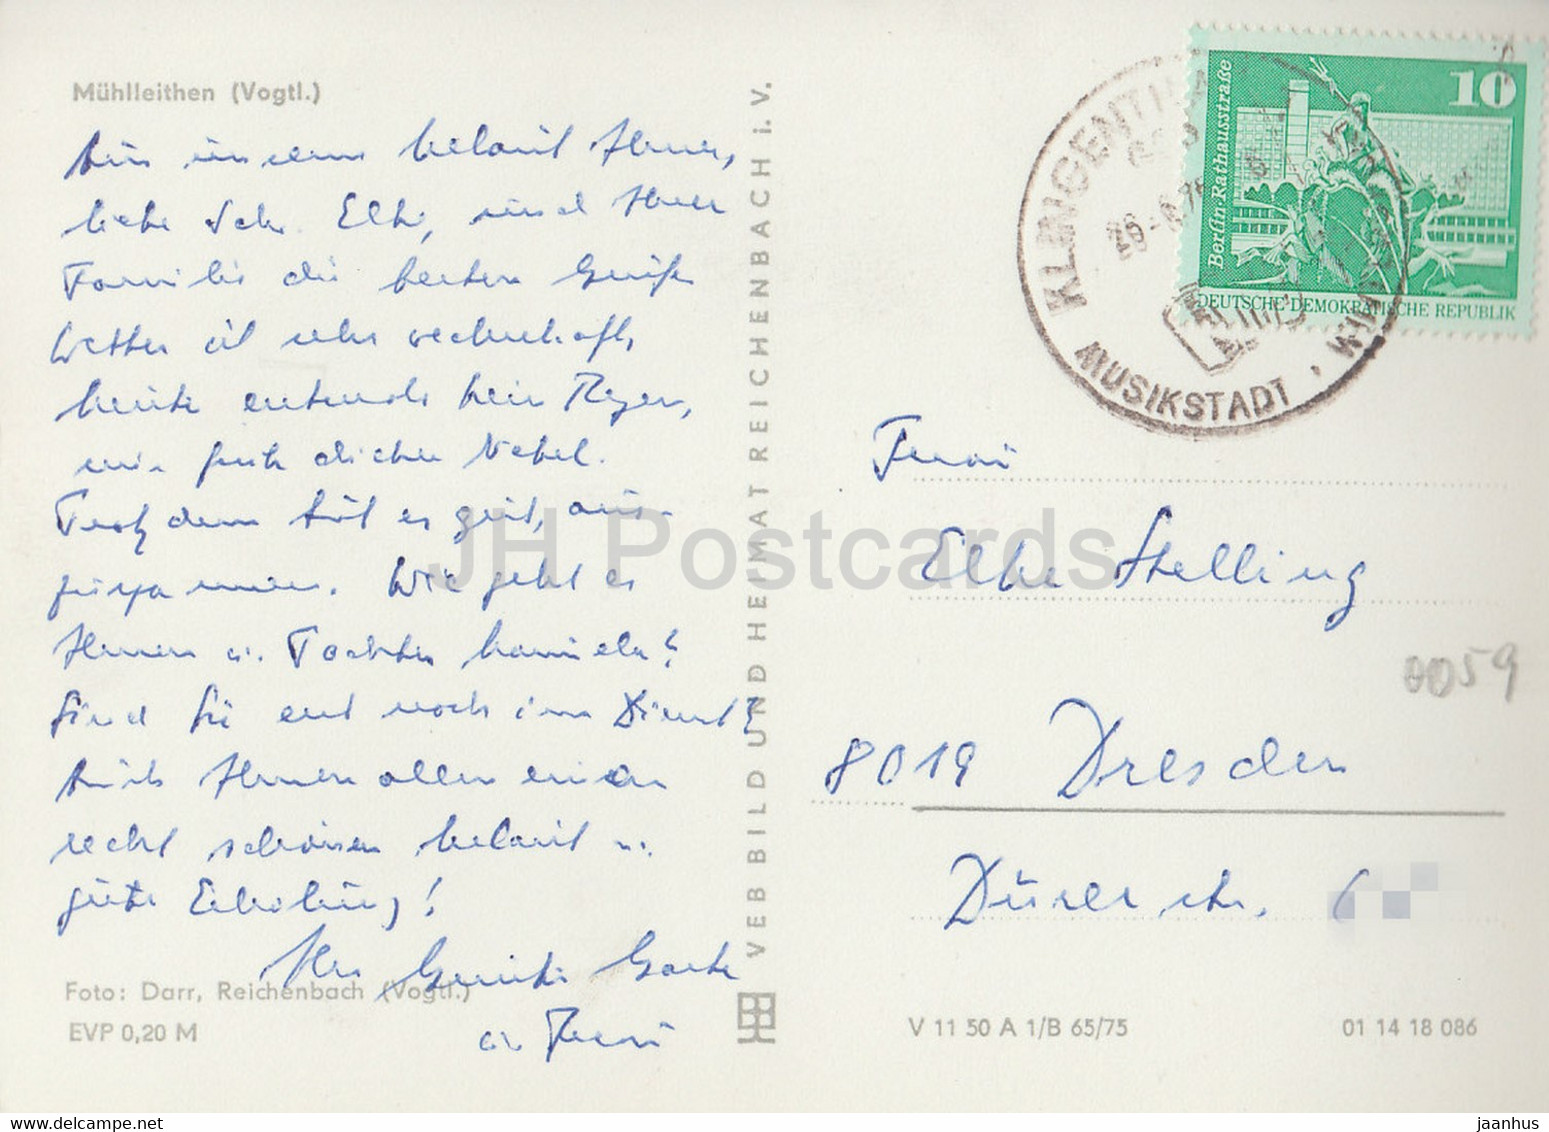 Mühlleithen (Vogtl.)
Aus unserem Urlaub Ihnen,
liebe Schw. Elke, und Ihrer
Familie die besten Grüße
Wetter ist sehr wechselhaft,
heute erstmals kein Regen,
nur früh dichter Nebel.
Trotzdem tut es gut, aus-
zuspannen. Wie geht es
Ihnen u. Tochter Daniela?
Sind Sie erst noch im Dienst?
Ihnen allen einen
recht schönen Urlaub u.
gute Erholung!
Ihr Günter
u. Frau
Foto: Darr, Reichenbach (Vogtl.)
EVP 0,20 M
VEB BILD UND HEIMAT REICHENBACH i. V.
JH Postcards
KLINGENTHAL
MUSIKSTADT
10
Berlin · Rathausstraße
DEUTSCHE DEMOKRATISCHE REPUBLIK
Frau
Elke Stelling
0059
8019 Dresden
Dürerstr. 6
V 11 50 A 1/B 65/75
01 14 18 086
jaanhus